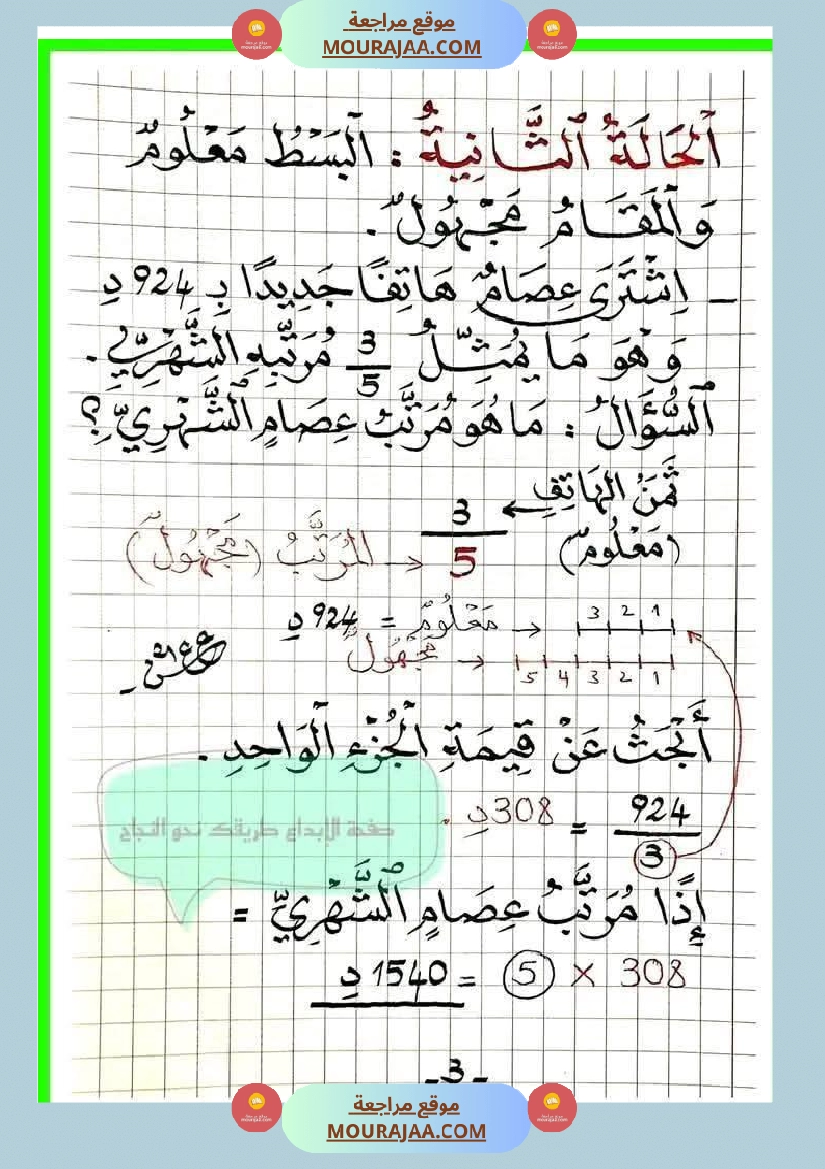 موقع مراجعة
MOURAJAA.COM
اَلْحَالَةُ الثَّانِيَةُ : اَلْبَسْطُ مَعْلُومٌ
وَالْمَقَامُ مَجْهُولٌ .
_ اِشْتَرَى عِصَامٌ هَاتِفًا جَدِيدًا بِـ 924 دِ
وَ هُوَ مَا يُمَثِّلُ 3/5 مُرَتَّبِهِ الشَّهْرِيِّ .
اَلسُّؤَالُ : مَا هُوَ مُرَتَّبُ عِصَامٍ الشَّهْرِيِّ ؟
ثَمَنُ الْهَاتِفِ ← 3
(مَعْلُومٌ)
5 → الْمُرَتَّبُ (مَجْهُولٌ)
1 2 3 → مَعْلُومٌ = 924 دِ
→ مَجْهُولٌ
1 2 3 4 5
أَبْحَثُ عَنْ قِيمَةِ الْجُزْءِ الْوَاحِدِ .
924/3 = 308 دِ .
صفحة الإبداع طريقك نحو النجاح
إِذًا مُرَتَّبُ عِصَامٍ الشَّهْرِيِّ =
308 × 5 = 1540 دِ
- 3 -
موقع مراجعة
MOURAJAA.COM